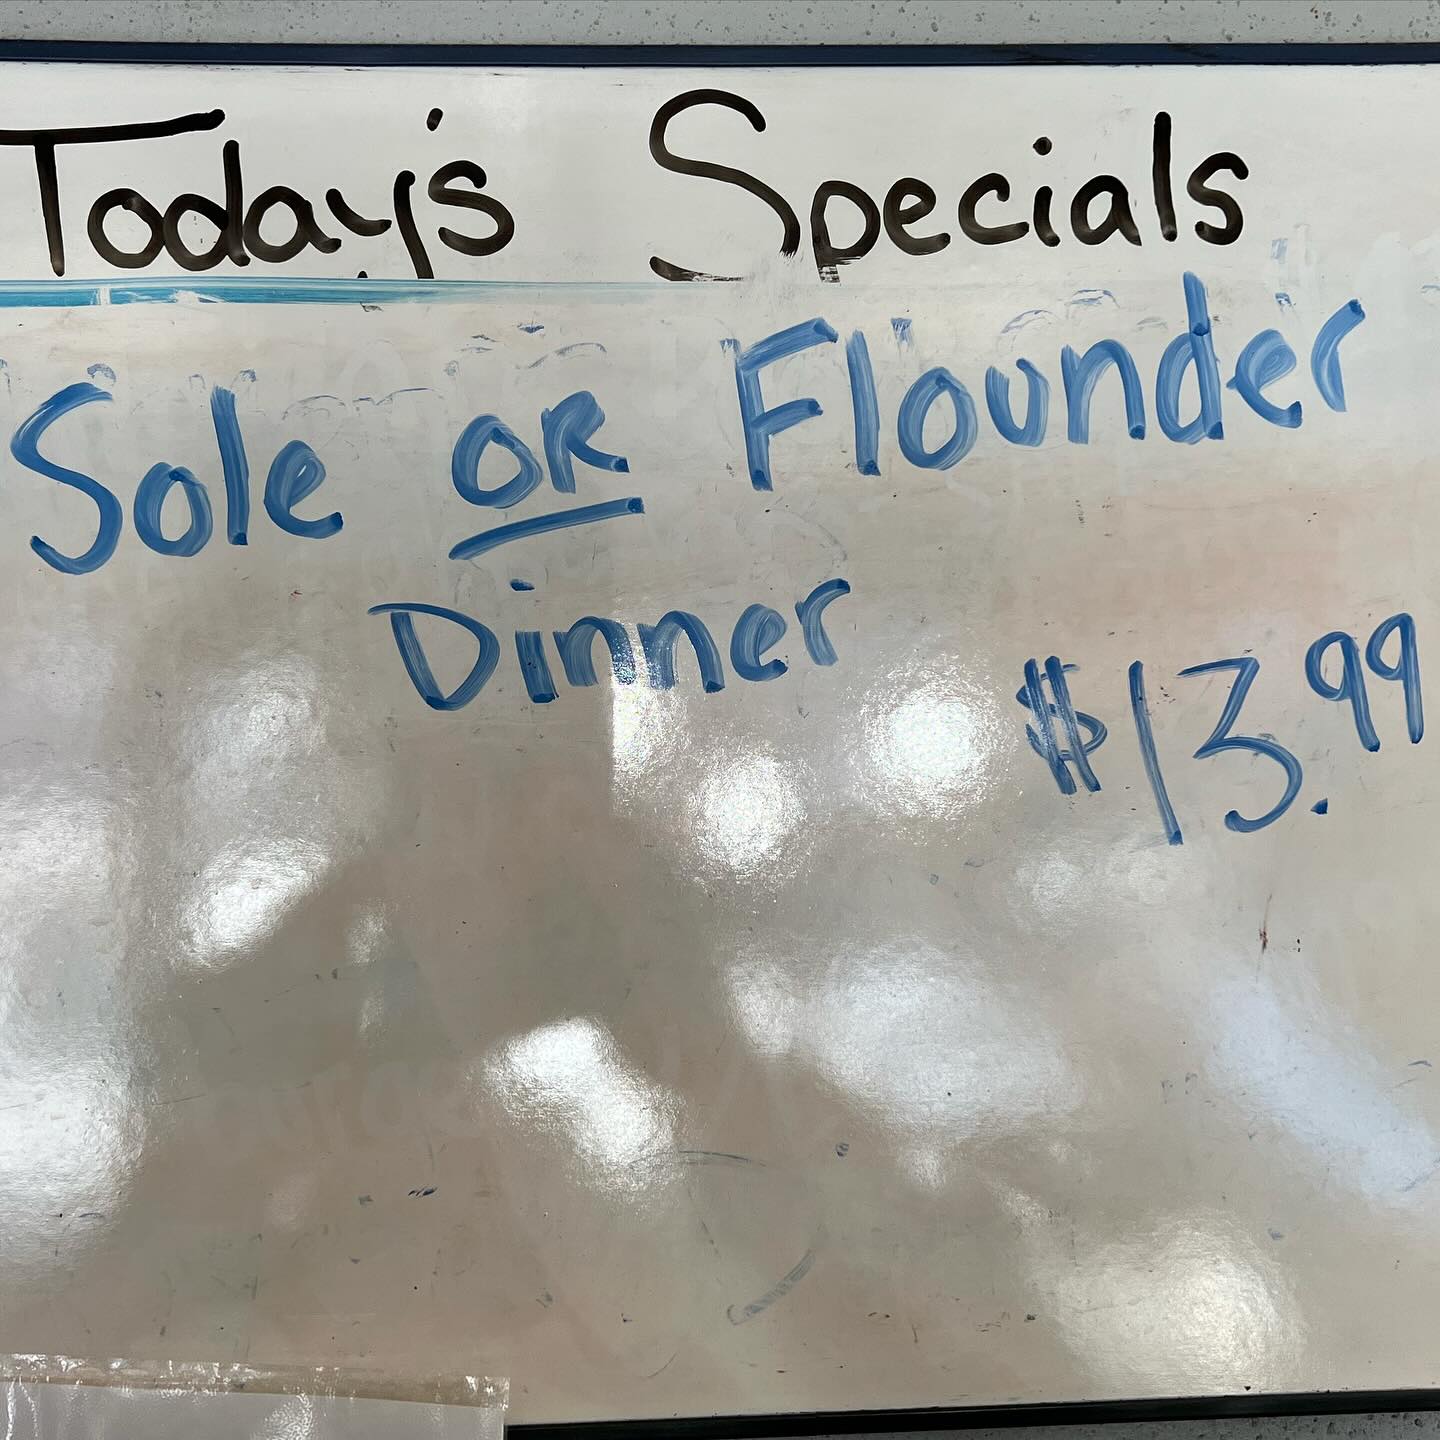 Today's Specials
Sole OR Flounder
Dinner
$13.99